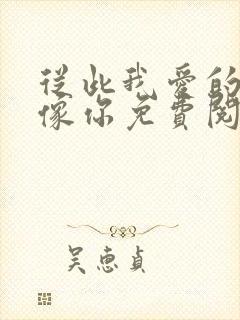 從此我愛的
像你免費閱
吳惠貞